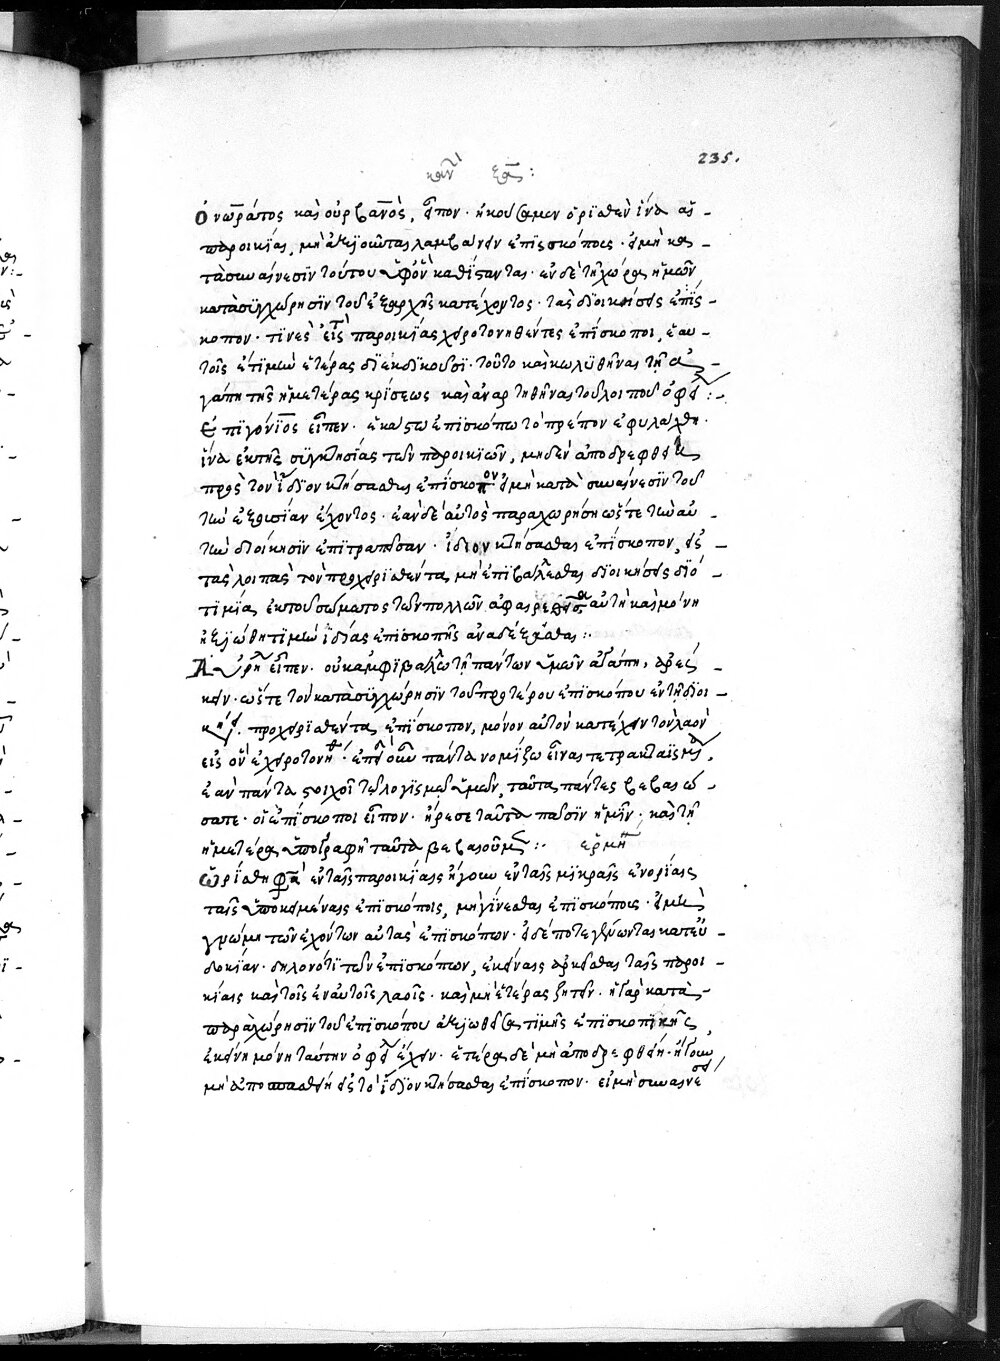 235.
κανὼν
ὁνωράτος καὶ οὐρβανὸς, εἶπον· ἠκούσαμεν ὁρισθὲν ἵνα αἱ
παροικίαι, μὴ ἀξιοῦνται λαμβάνειν ἐπισκόπους· εἰμὴ κα
τὰ συναίνεσιν τούτου ὑφ' ὃν καθίστανται· ἐν δὲ τῇ χώρᾳ ἡμῶν
κατὰ συγχώρησιν τοῦ ἐξαρχῆς κατέχοντος· τὰς διοικήσεις ἐπίσ
κοπον· τινὲς εἰς παροικίας χειροτονηθέντες ἐπίσκοποι, ἑαυ
τοῖς ἔτι μὴν ἑτέρας διεκδικοῦσι· τοῦτο καὶ κωλυθῆναι τῇ ἀ
γάπῃ τῆς ἡμετέρας κρίσεως καὶ ἀναρτηθῆναι τοῦ λοιποῦ ὀφεί:
ἐπιγόνιος εἶπεν· ἑκάστῳ ἐπισκόπῳ τὸ πρέπον ἐφυλάχθη·
ἵνα ἐκ τῆς συγκτησίας τῶν παροικιῶν, μηδὲν ἀποδρεφθείη
πρὸς τὸν ἴδιον κτήσασθαι ἐπίσκοπον εἰμὴ κατὰ συναίνεσιν τοῦ
τὴν ἐξουσίαν ἔχοντος· ἐὰν δὲ αὐτὸς παραχωρήσῃ ὥστε τὴν αὐ
τὴν διοίκησιν ἐπιτραπεῖσαν· ἴδιον κτήσασθαι ἐπίσκοπον, εἰς
τὰς λοιπὰς τὸν προχειρισθέντα μὴ ἐπιβαλέσθαι διοικήσεις διό
τι μία, ἐκ τοῦ σώματος τῶν πολλῶν ἀφαιρεθεῖσα αὐτὴ καὶ μόνη
ἠξιώθη τιμὴν ἰδίας ἐπισκοπῆς ἀναδέξασθαι:
αὐρή εἶπεν· οὐκ ἀμφιβάλλω τῇ πάντων ὑμῶν ἀγάπῃ, ἀρέσ
κειν· ὥστε τὸν κατὰ συγχώρησιν τοῦ προτέρου ἐπισκόπου ἐν τῇ διοι
κήσει προχειρισθέντα ἐπίσκοπον, μόνον αὐτὸν κατέχειν τὸν λαὸν
εἰς ὃν ἐχειροτονήθη· ἐπεὶ οὖν πάντα νομίζω εἶναι τετρακταϊσμένα,
ἐὰν πάντα στοιχοῖ τῷ λογισμῷ ὑμῶν, ταῦτα πάντες βεβαιώ
σατε· οἱ ἐπίσκοποι εἶπον· ἤρεσε ταῦτα πᾶσιν ἡμῖν· καὶ τῇ
ἡμετέρᾳ ὑπογραφῇ ταῦτα βεβαιοῦμεν: ἑρμη
ὡρίσθη φησὶ ἐν ταῖς παροικίαις ἤγουν ἐν ταῖς μικραῖς ἐνορίαις
ταῖς ὑποκειμέναις ἐπισκόποις, μὴ γίνεσθαι ἐπισκόπους· εἰμὴ
γνώμῃ τῶν ἐχόντων αὐτὰς ἐπισκόπων· εἰ δέ ποτε γένωνται κατ' εὐ
δοκίαν· δηλονότι τῶν ἐπισκόπων, ἐκείναις ἀρκεῖσθαι ταῖς παροι
κίαις καὶ τοῖς ἐν αὐτοῖς λαοῖς· καὶ μὴ ἑτέρας ζητεῖν· ἡ γὰρ κατὰ
παραχώρησιν τοῦ ἐπισκόπου ἀξιωθεῖσα τιμῆς ἐπισκοπικῆς,
ἐκείνη μόνη ταύτην ὀφείλει ἔχειν· ἑτέρα δὲ μὴ ἀποδρεφθείη· ἤγουν
μὴ ἀποσπασθείη εἰς τὸ ἴδιον κτήσασθαι ἐπίσκοπον· εἰ μὴ συναινέσει